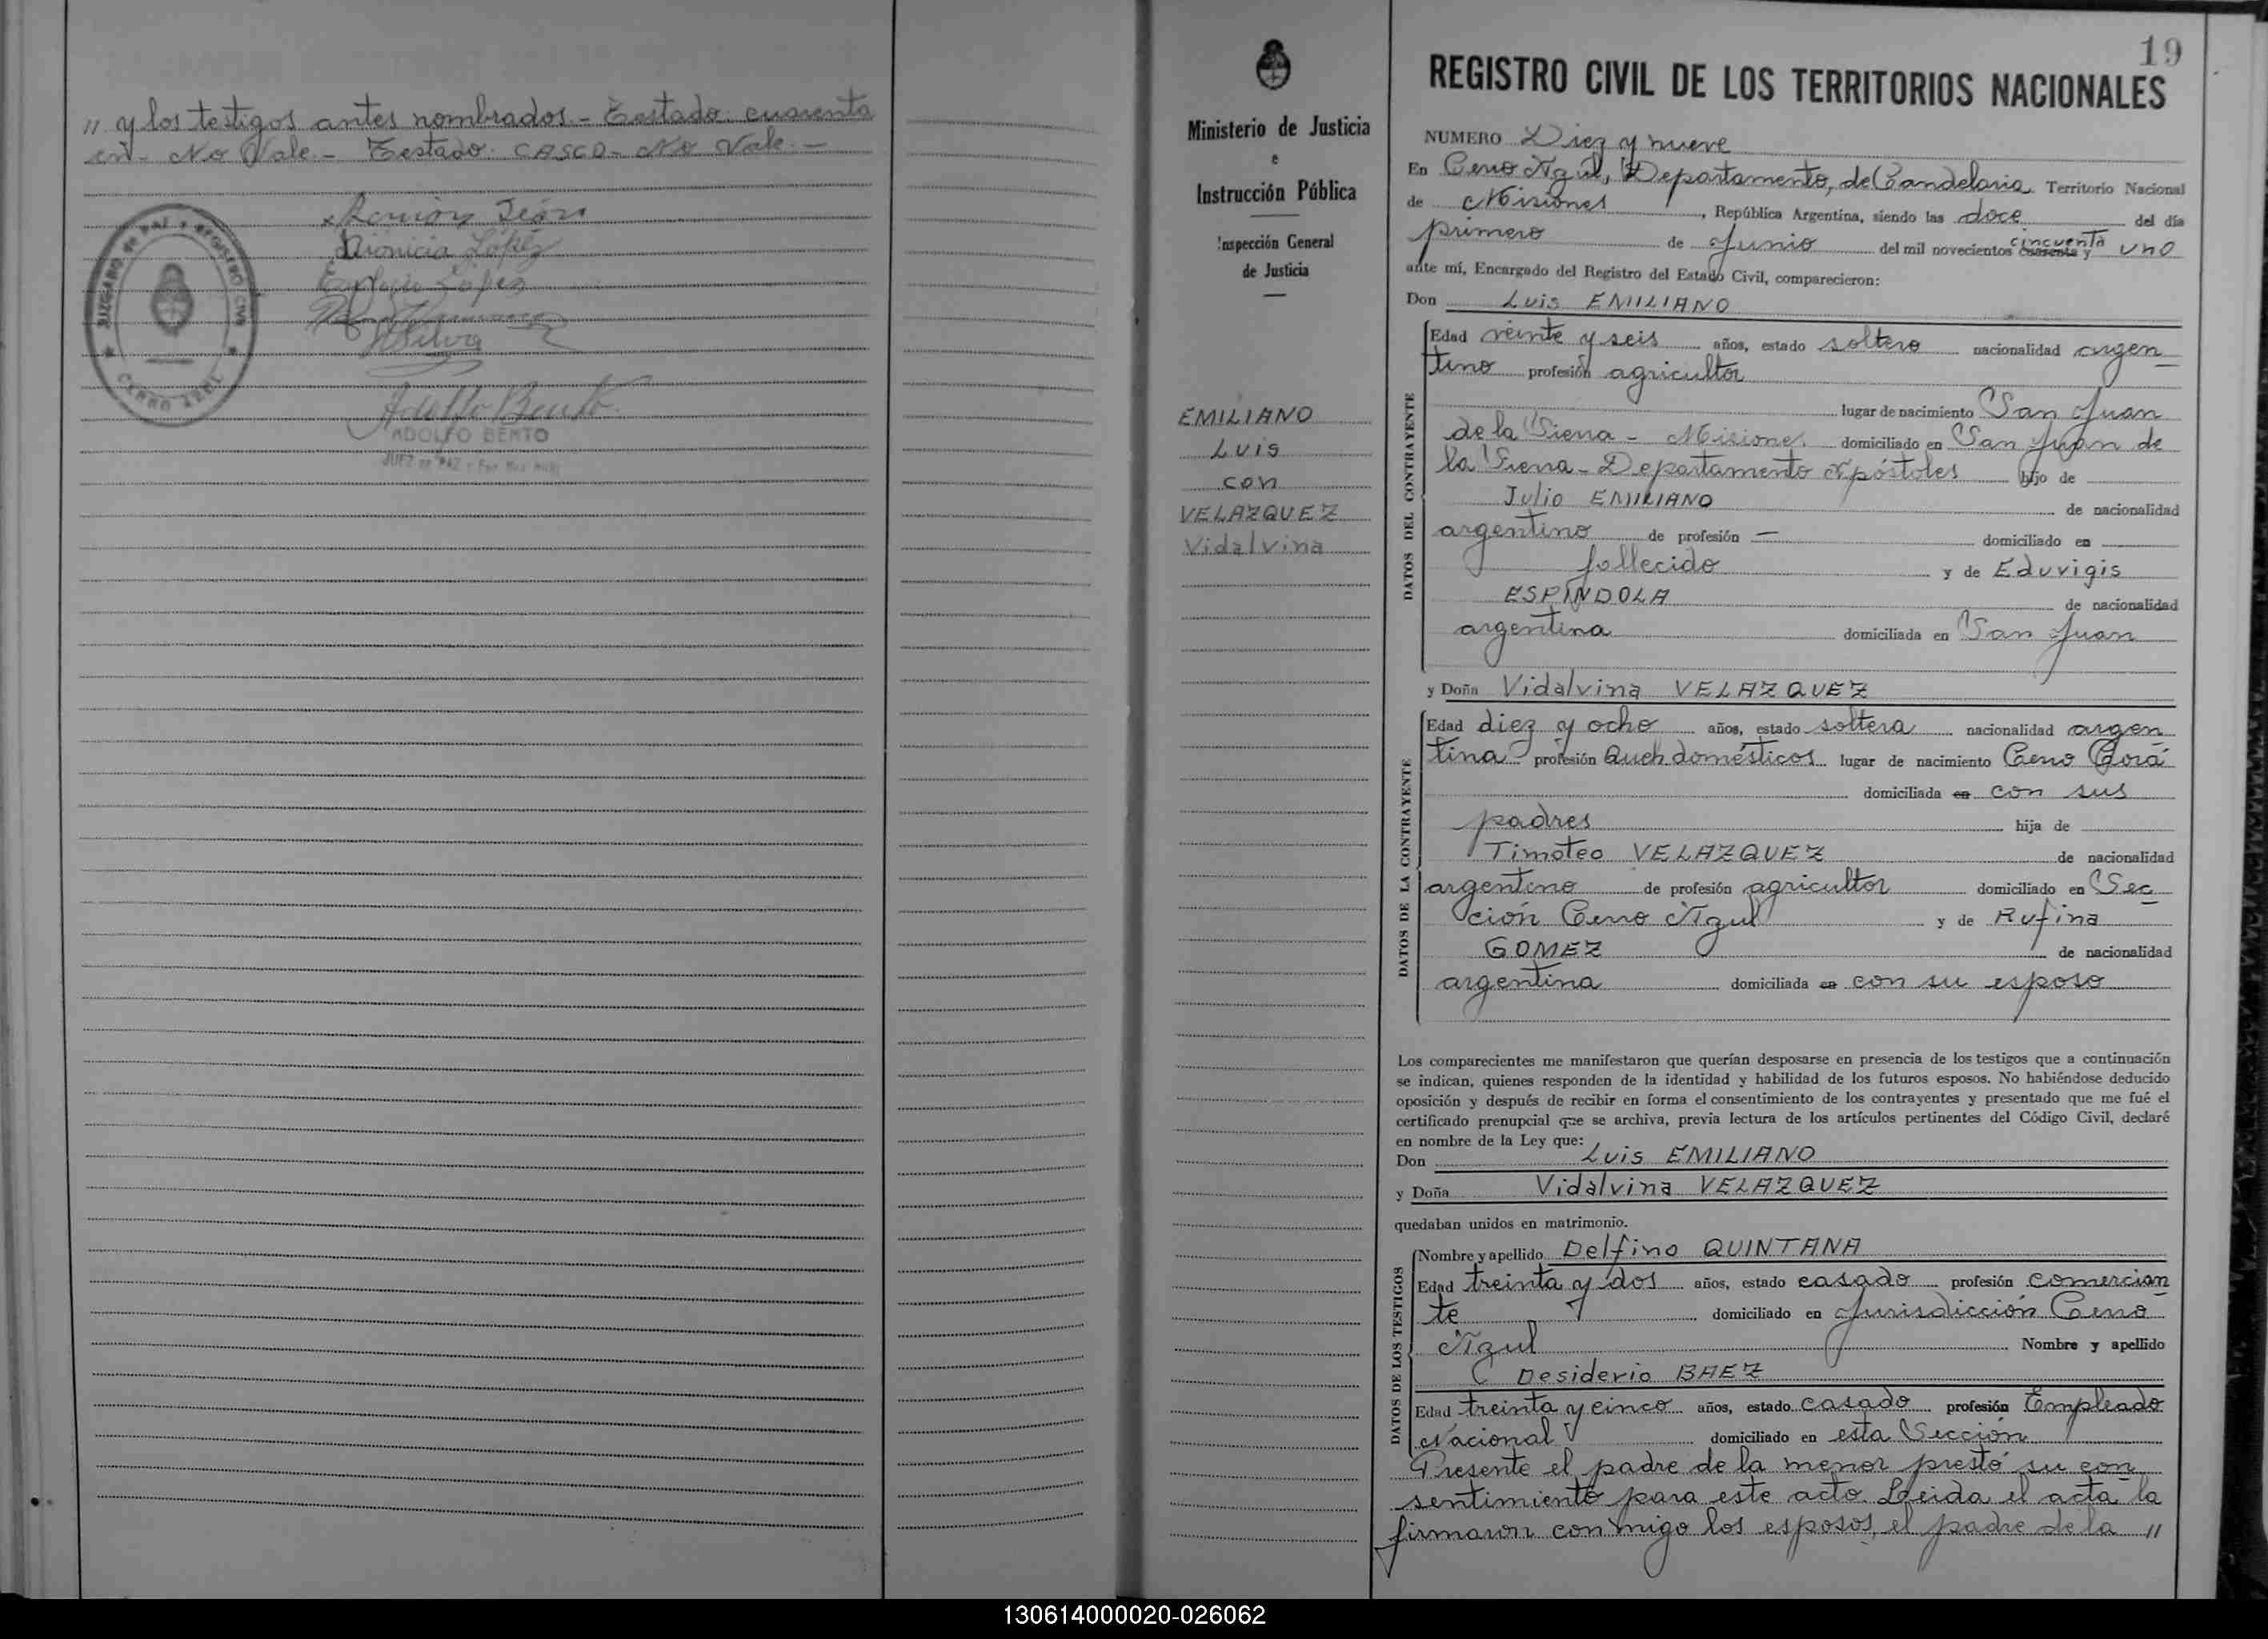 " y los testigos antes nombrados - Testado: cuarenta
en - No Vale. - Testado: CASCO - No Vale. -
Ramón
Dionicia López
López
Silva
JUZGADO DE PAZ Y REGISTRO CIVIL
CERRO AZUL
Adolfo Bento
ADOLFO BENTO
JUEZ DE PAZ
Ministerio de Justicia
e
Instrucción Pública
Inspección General
de Justicia
EMILIANO
Luis
con
VELAZQUEZ
Vidalvina
19
REGISTRO CIVIL DE LOS TERRITORIOS NACIONALES
NUMERO Diez y nueve
En Cerro Azul, Departamento, de Candelaria Territorio Nacional
de Misiones, República Argentina, siendo las doce del día
primero de Junio del mil novecientos cuarenta cincuenta y uno
ante mí, Encargado del Registro del Estado Civil, comparecieron:
Don Luis EMILIANO
DATOS DEL CONTRAYENTE
Edad veinte y seis años, estado soltero nacionalidad argen
tino profesión agricultor
lugar de nacimiento San Juan
de la Sierra - Misiones domiciliado en San Juan de
la Sierra - Departamento Apóstoles hijo de
Julio EMILIANO de nacionalidad
argentino de profesión — domiciliado en
fallecido y de Eduvigis
ESPINDOLA de nacionalidad
argentina domiciliada en San Juan
y Doña Vidalvina VELAZQUEZ
DATOS DE LA CONTRAYENTE
Edad diez y ocho años, estado soltera nacionalidad argen
tina profesión Queh. domésticos lugar de nacimiento Cerro Corá
domiciliada en con sus
padres hija de
Timoteo VELAZQUEZ de nacionalidad
argentino de profesión agricultor domiciliado en Sec
ción Cerro Azul y de Rufina
GOMEZ de nacionalidad
argentina domiciliada en con su esposo
Los comparecientes me manifestaron que querían desposarse en presencia de los testigos que a continuación
se indican, quienes responden de la identidad y habilidad de los futuros esposos. No habiéndose deducido
oposición y después de recibir en forma el consentimiento de los contrayentes y presentado que me fué el
certificado prenupcial que se archiva, previa lectura de los artículos pertinentes del Código Civil, declaré
en nombre de la Ley que:
Don Luis EMILIANO
y Doña Vidalvina VELAZQUEZ
quedaban unidos en matrimonio.
DATOS DE LOS TESTIGOS
Nombre y apellido Delfino QUINTANA
Edad treinta y dos años, estado casado profesión comercian
te domiciliado en Jurisdicción Cerro
Azul Nombre y apellido
Desiderio BAEZ
Edad treinta y cinco años, estado casado profesión Empleado
Nacional domiciliado en esta Sección
Presente el padre de la menor prestó su con
sentimiento para este acto. Leida el acta la
firmaron conmigo los esposos, el padre de la "
130614000020-026062